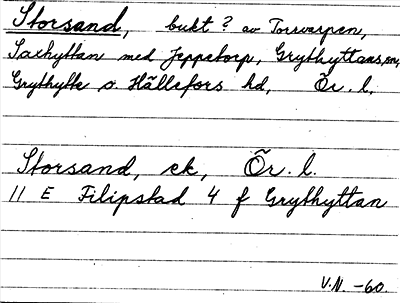 Storsand, bukt? av Torrvarpen,
Saxhyttan med Jeppetorp, Grythyttans sn,
Grythytte o. Hällefors hd, Ör. l.
Storsand, ek, Ör. l.
11 E Filipstad 4 f Grythyttan
V.N. -60.